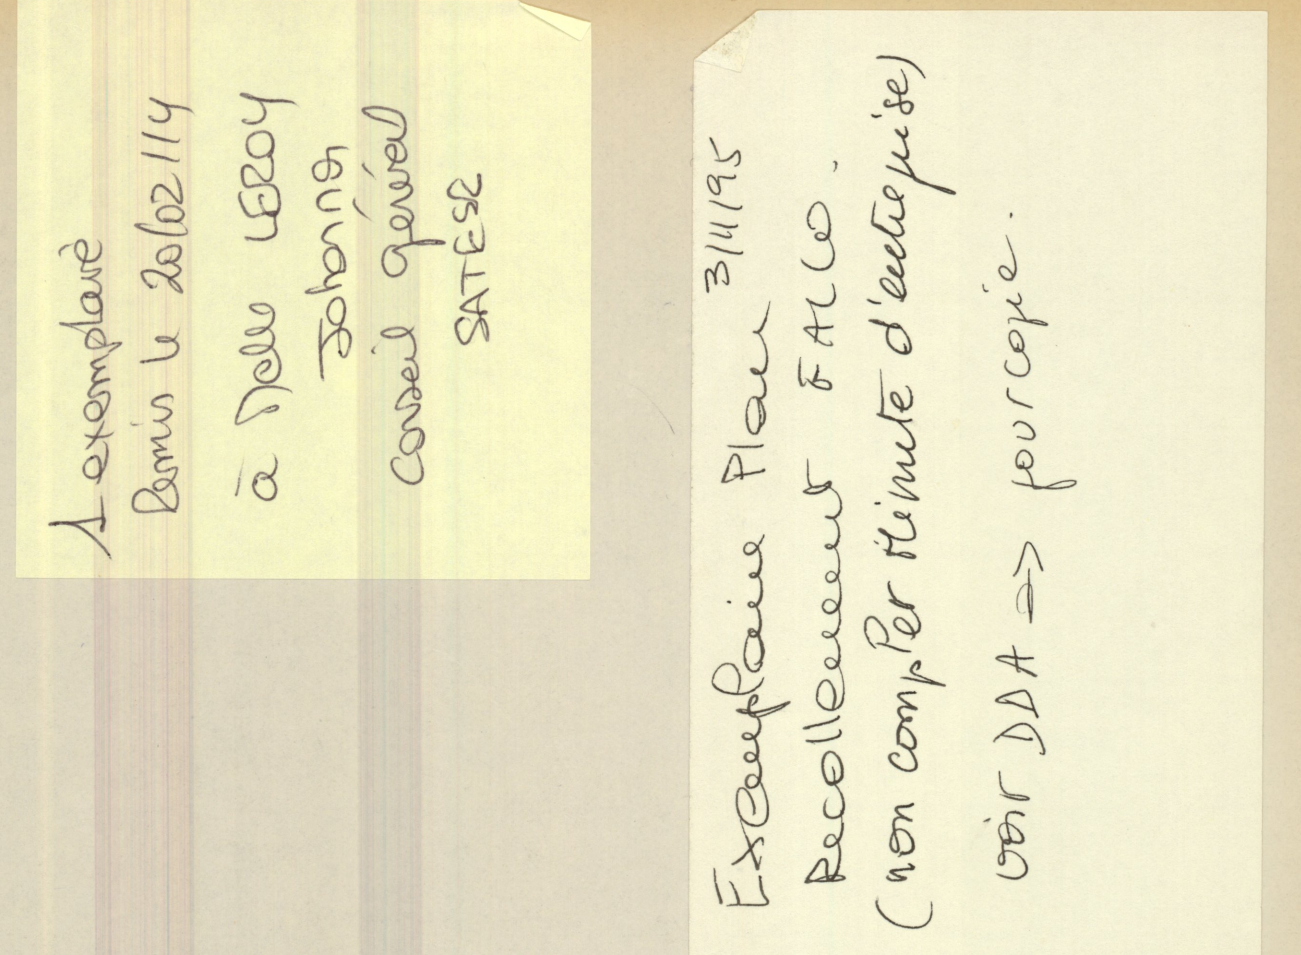 1 exemplaire
Remis le 20/02/14
à Melle LEROY
Johanna
Conseil général
SATESE
3/4/95
Exemplaire Plan
Recollement FALCO.
(non comp Per Minute d'entreprise)
voir DDA => pour copie.